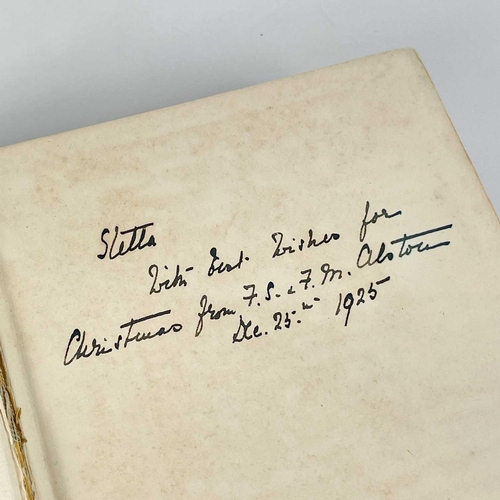 Stella
With best Wishes for
Christmas from F.S. & F.M. Alston
Dec. 25.th 1925